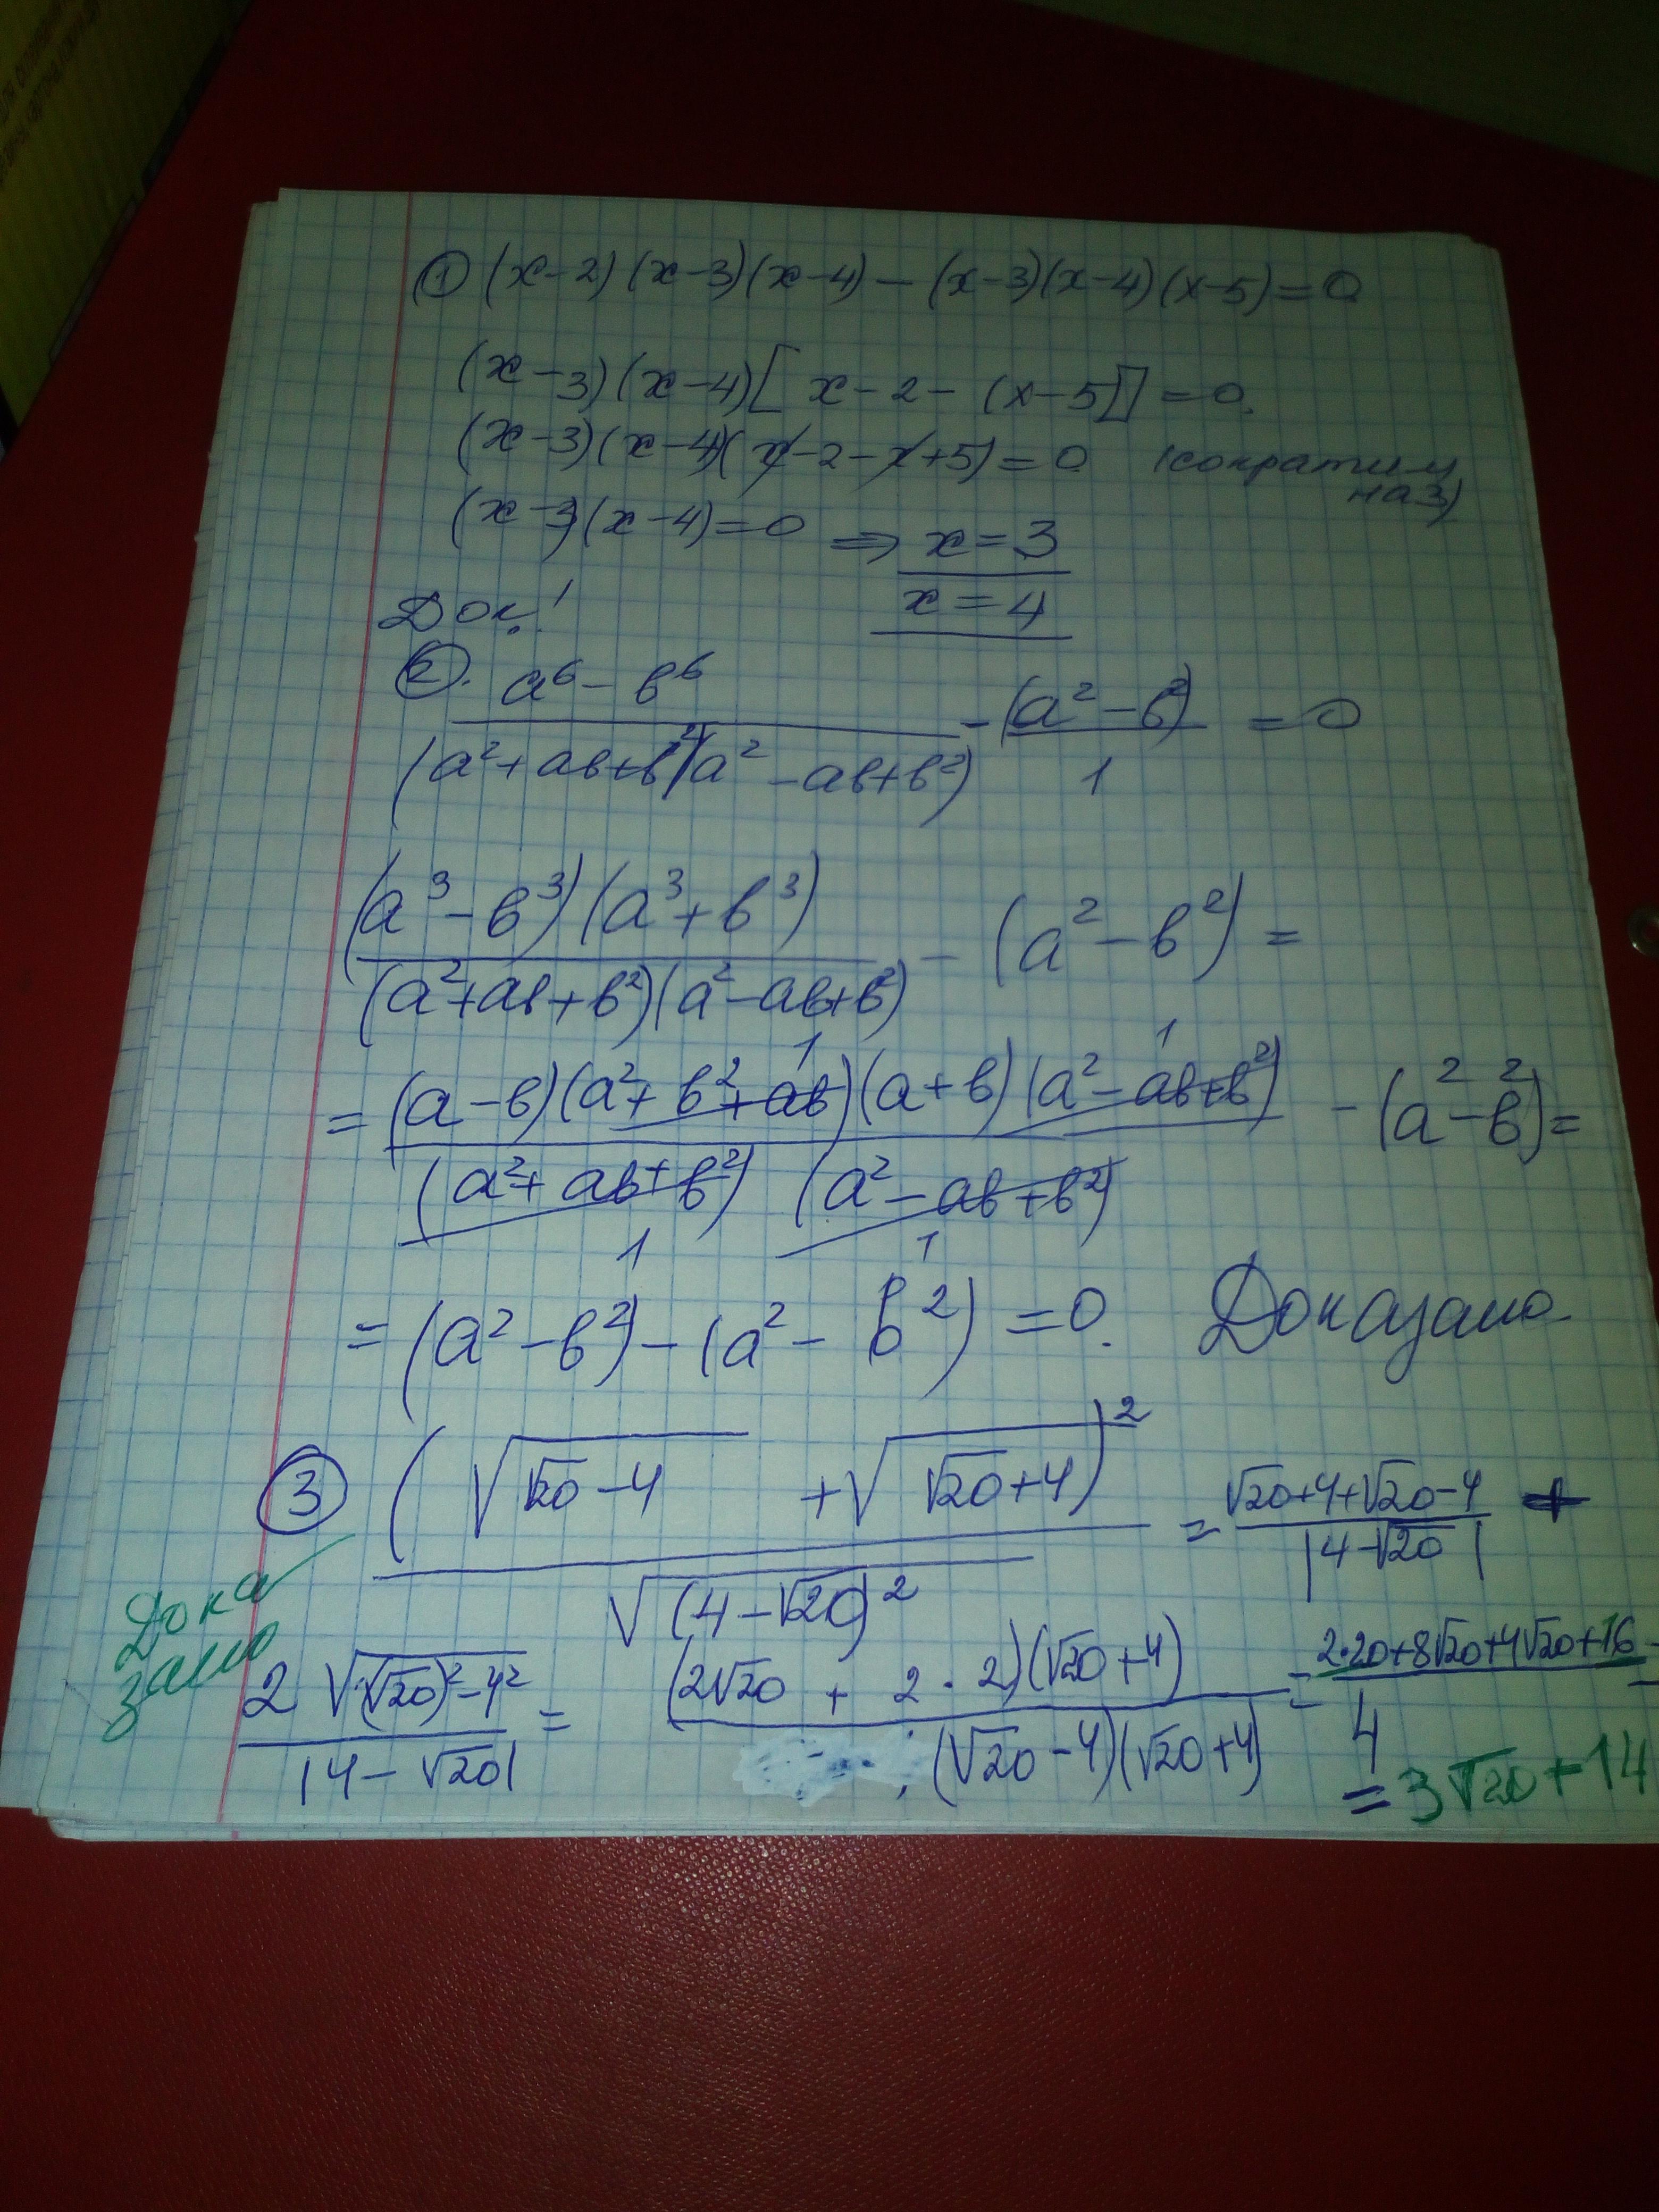 ① (x-2)(x-3)(x-4) - (x-3)(x-4)(x-5) = 0
(x-3)(x-4)[x-2-(x-5)] = 0.
(x-3)(x-4)(x-2-x+5) = 0 (сократим
на 3)
(x-3)(x-4) = 0 ⇒ x = 3
x = 4
Док!
②. (a⁶ - b⁶)/((a²+ab+b²)(a²-ab+b²)) - (a²-b²)/1 = 0
((a³-b³)(a³+b³))/((a²+ab+b²)(a²-ab+b²)) - (a²-b²) =
= ((a-b)(a²+b²+ab)(a+b)(a²-ab+b²))/((a²+ab+b²)(a²-ab+b²)) - (a²-b²) =
= (a²-b²) - (a²-b²) = 0. Доказано.
③ (√(√20-4) + √(√20+4))²/√((4-√20)²) = (√20+4+√20-4)/|4-√20| +
Дока
зано
2√((√20)²-4²)/|4-√20| = ((2√20+2·2)(√20+4))/((√20-4)(√20+4)) = (2·20+8√20+4√20+16)/4 =
= 3√20+14